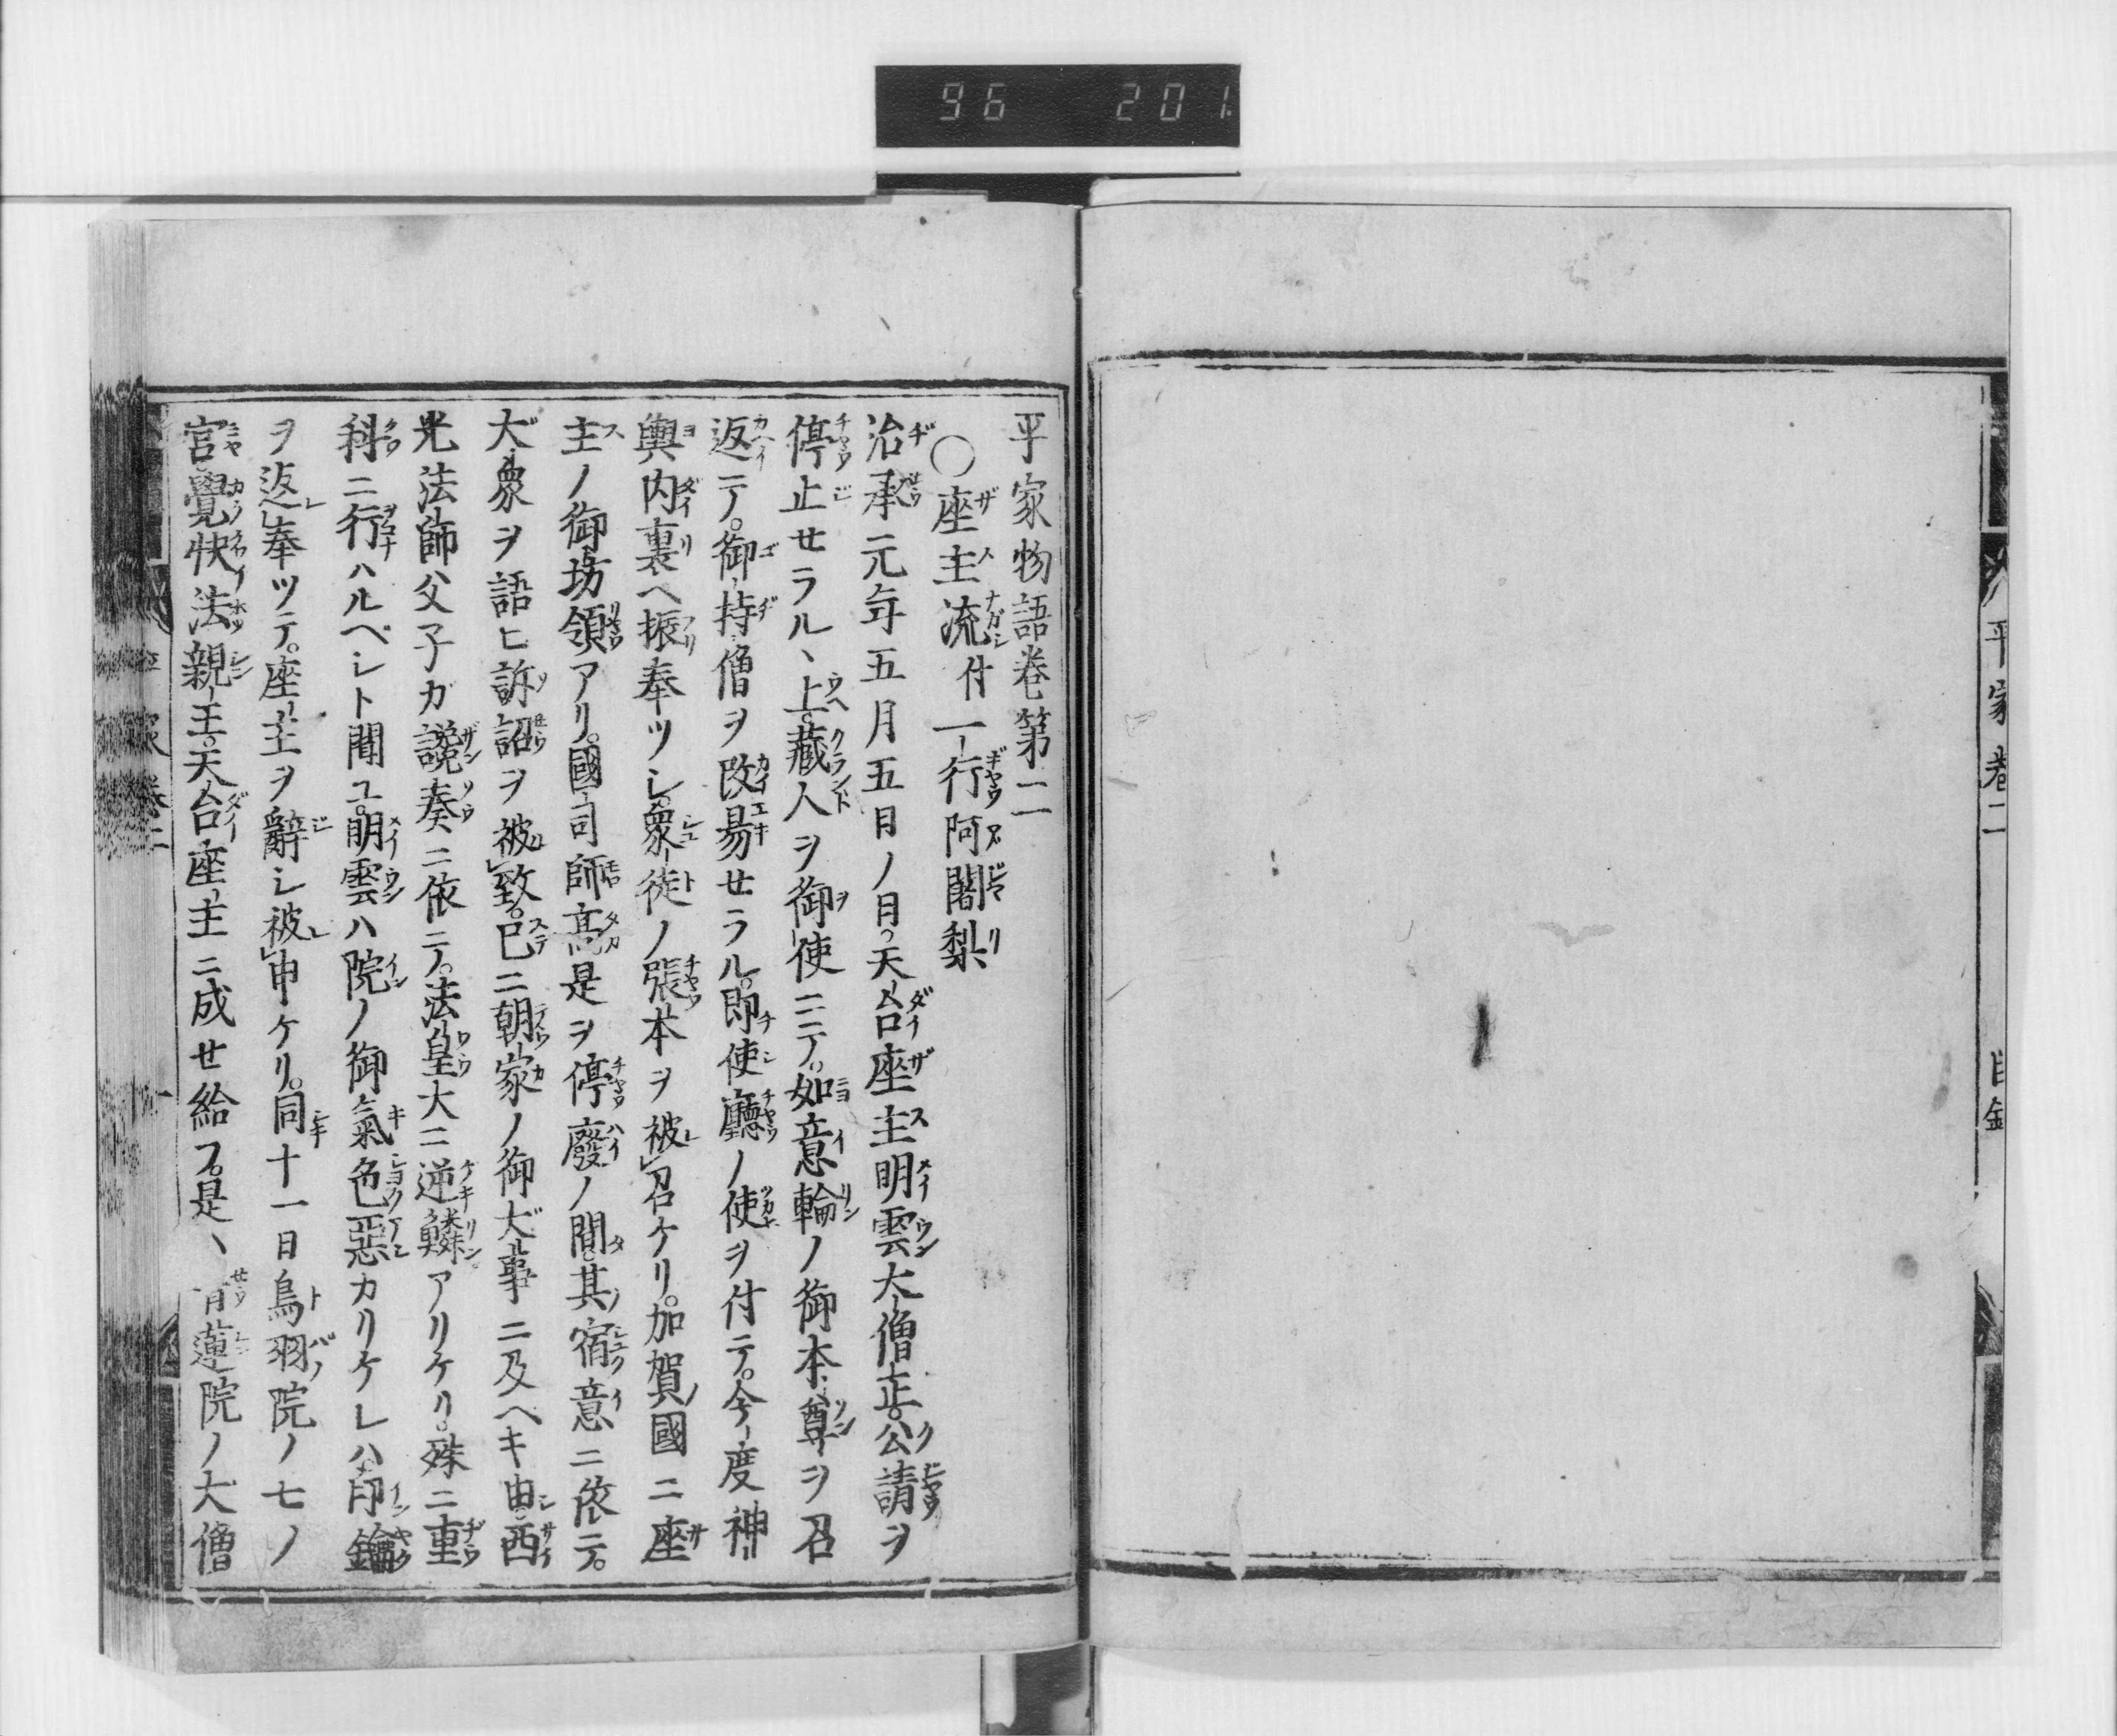 96 201.
平家巻二
目録
平家物語巻第二
○座主流付一行阿闍梨
治承元年五月五日ノ日天台座主明雲大僧正公請ヲ
停止セラルヽ上藏人ヲ御使ニテ如意輪ノ御本尊ヲ召
返テ御持僧ヲ改易セラル即使廳ノ使ヲ付テ今度神
輿内裏ヘ振奉ツシ衆徒ノ張本ヲ被召ケリ加賀國ニ座
主ノ御坊領アリ國司師高是ヲ停廢ノ間其宿意ニ依テ
大衆ヲ語ヒ訴詔ヲ被致已ニ朝家ノ御大事ニ及ヘキ由西
光法師父子ガ讒奏ニ依テ法皇大ニ逆鱗アリケリ殊ニ重
科ニ行ハルベシト聞ユ明雲ハ院ノ御氣色惡カリケレハ印鑰
ヲ返奉ツテ座主ヲ辭シ被申ケリ同十一日鳥羽院ノ七ノ
宮覺快法親王天台座主ニ成セ給フ是ハ青蓮院ノ大僧